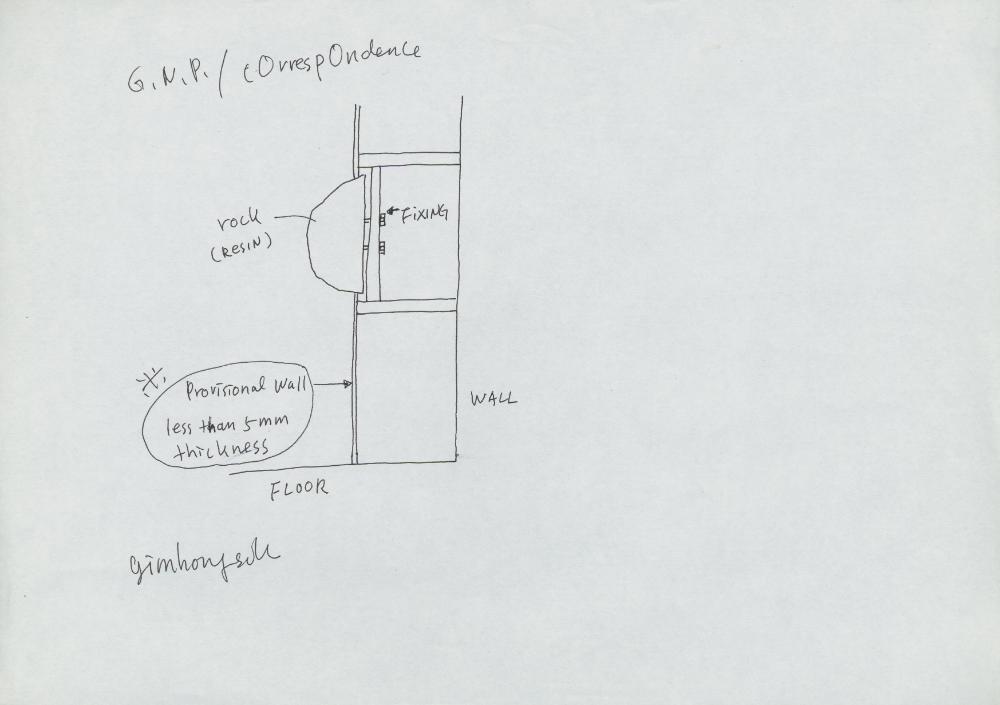 G.N.P. / cOrrespOndence
rock
(RESIN)
FiXING
※.
Provisional wall
less than 5mm
thickness
WALL
FLOOR
gimhongsok